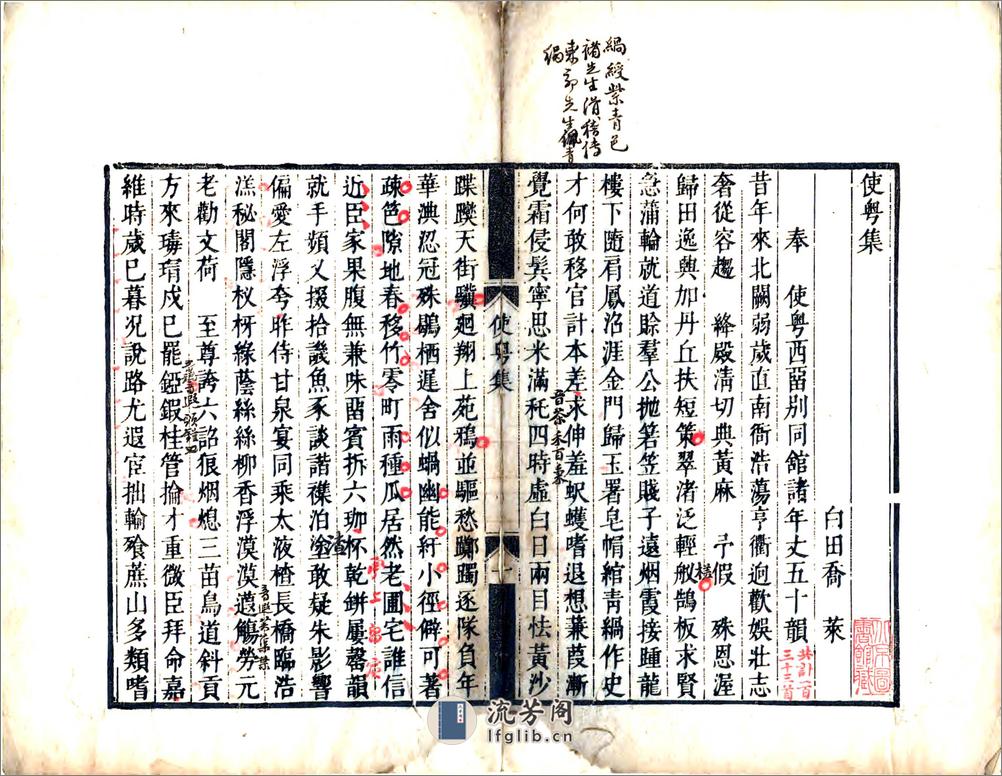 使粵集
白田喬　萊
奉　使粵西畱別同舘諸年丈五十韻
昔年來北闕弱歲直南衙浩蕩亨衢迥歡娛壯志
奢從容趨　絳殿淸切典黃麻　予假　殊恩渥
歸田逸興加丹丘扶短策翠渚泛輕舣鵠板求賢
急蒲輪就道賒羣公抛箬笠賤子遠烟霞接踵龍
樓下隨肩鳳沼涯金門歸玉署皂帽綰靑緺作史
才何敢移官計本差求伸羞蚇蠖嗜退想蒹葭漸
覺霜侵鬂寧思米滿秅四時虛白日兩目怯黃沙
蹀躞天街驥廻翔上苑鴉並驅愁躑躅逐隊負年
華淟忍冠殊鶡栖遲舍似蝸幽能紆小徑僻可著
疎笆隙地春移竹零町雨種瓜居然老圃宅誰信
近臣家果腹無兼味畱賓拆六珈杯乾缾屢罄韻
就手頻乂掇拾譏魚豕談諧襍泊塗敢疑朱影響
偏愛左浮夸昨侍甘泉宴同乘太液楂長橋臨浩
渼秘閣隱杈枒綠蔭絲絲柳香浮漠漠蕸觴勞元
老勸文荷　至尊誇六詔狼烟熄三苗鳥道斜貢
方來璹琄戍巳罷錏鍜桂管掄才重微臣拜命嘉
維時歲巳暮况說路尤遐宦拙輸飱蔗山多類嗜
使粤集
一
緺綬紫青色
褚先生滑稽傳
東郭先生佩青
緺
此計一百
三十三首
流芳阁
lfglib.cn